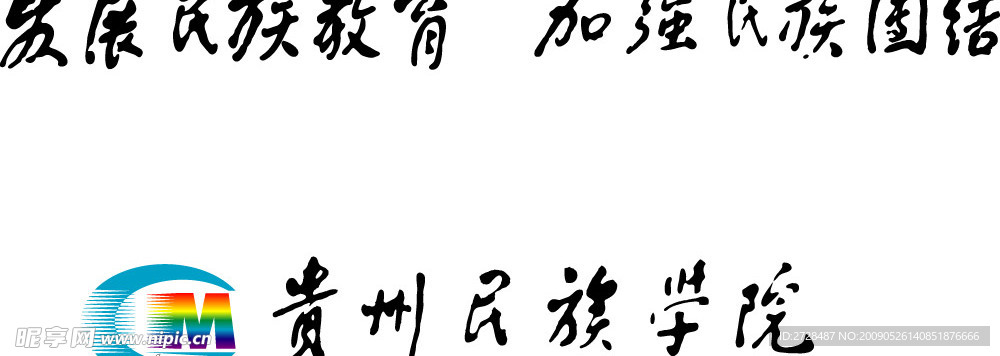 发展民族教育 加强民族团结
贵州民族学院
M
昵享网 www.nipic.cn
ID:2728487 NO:20090526140851876666